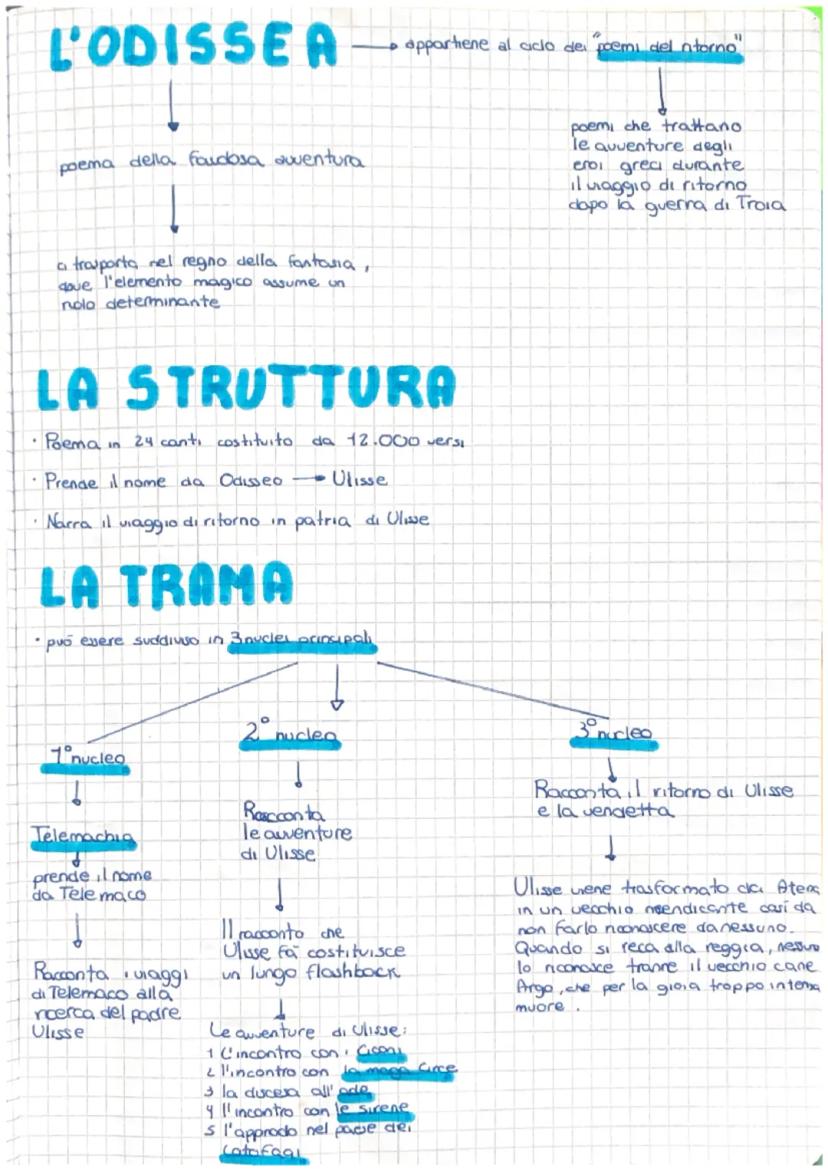 L'ODISSEA → appartiene al ciclo dei "poemi del ritorno"
poemi che trattano
le avventure degli
eroi greci durante
il viaggio di ritorno
dopo la guerra di Troia
poema della favolosa avventura
ci trasporta nel regno della fantasia,
dove l'elemento magico assume un
ruolo determinante
LA STRUTTURA
· Poema in 24 canti costituito da 12.000 versi
· Prende il nome da Odisseo → Ulisse
· Narra il viaggio di ritorno in patria di Ulisse
LA TRAMA
· può essere suddiviso in 3 nuclei principali
1° nucleo
Telemachia
prende il nome
da Telemaco
Racconta i viaggi
di Telemaco alla
ricerca del padre
Ulisse
2° nucleo
Racconta
le avventure
di Ulisse
Il racconto che
Ulisse fa costituisce
un lungo flashback
Le avventure di Ulisse:
1 L'incontro con i Ciconi
2 l'incontro con la maga Circe
3 la discesa all'ade
4 l'incontro con le sirene
5 l'approdo nel paese dei
Lotofagi
3° nucleo
Racconta il ritorno di Ulisse
e la vendetta
Ulisse viene trasformato da Atena
in un vecchio mendicante così da
non farlo riconoscere da nessuno.
Quando si reca alla reggia, nessuno
lo riconosce tranne il vecchio cane
Argo, che per la gioia troppo intensa
muore.